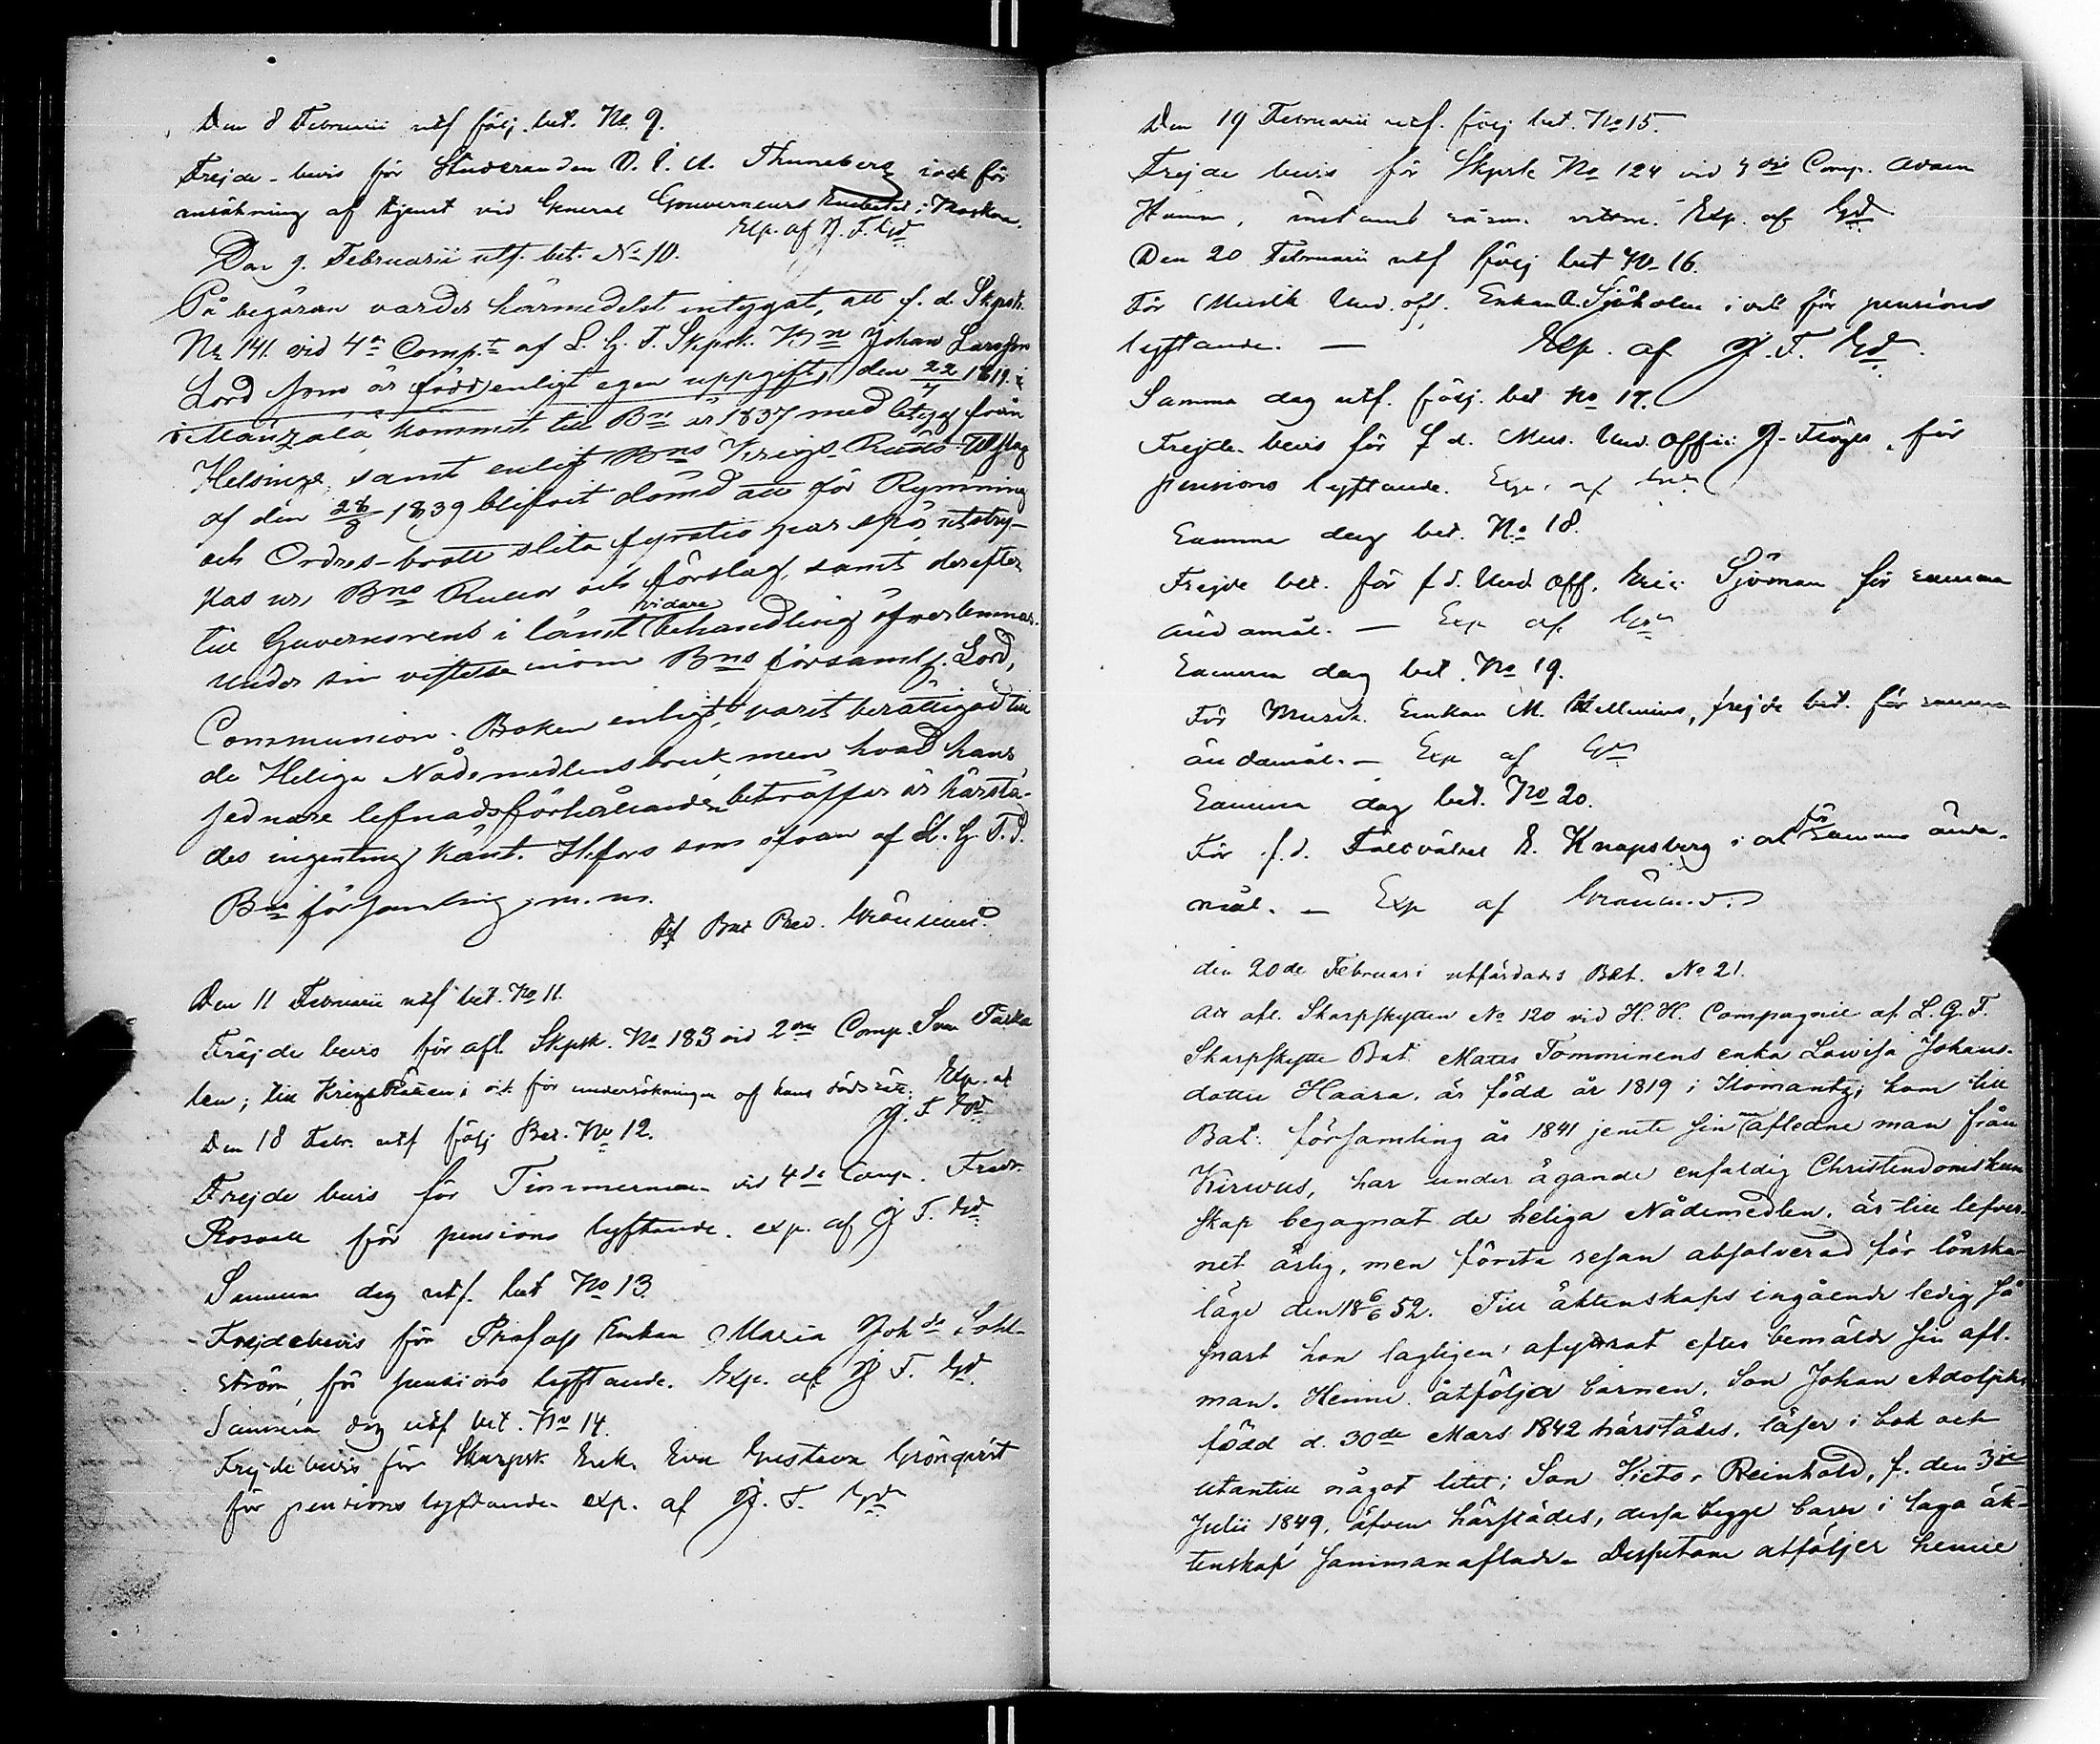 Den 8 Februarii utf följ. bet. No. 9.
Frejde-bevis för Studeranden Thuneberg i och för
ansökning af tjenst vid General Gouverneurs Embetet i Moskva.
Exp. af J. F. Gd
Den 9. Februarii utf. bet. No 10.
På begäran varder härmedelst intygat, att f. d. Skpsk.
No 141. vid 4a Comp.t af L. G. F. Skpsk. Bn Johan Larsson
Lord som är född enligt egen uppgift, den 22/4 1819 i
i Mäntzälä, kommit till Bn år 1837 med betyg från
Helsinge, samt enligt Bns Krigs-Rätts Utslag
af den 28/8 1839 blifvit dömd att för Rymning
och Ordres-brott slita fyratio par spö, utstry-
kas ur Bns Rullor och förslag, samt derefter
till Guvernörens i länet vidare behandling öfverlemnas.
Under sin vistelse inom Bns församlg. Lord,
Communion-Boken enligt, varit berättigad till
de Heliga Nådemedlens bruk, men hvad hans
sednare lefnadsförhållanden beträffar är härstä-
des ingenting känt. Hfors som ofvan af L. G. F. S.
Bns församling, m. m.
Bns Pred. Grönlund
Den 11 Februarii utf bet. No 11.
Fräjde bevis för afl. Skpsk. No 183 vid 2dra Comp. Sven
till Krigsrätten i och för undersökningen af hans dödssätt. Exp. af
J. F. Gd
Den 18 Febr. utf följ Bet. No 12.
Frejde bevis för Timmerman vid 4de Comp. Fredr.
Rosvall för pensions lyftande. exp. af J. F. Gd
Samma dag utf. bet No 13.
Frejdebevis för Enkan Maria Johdr Sohl-
ström, för pensions lyftande. Exp. af J F. Gd.
Samma dag utf bet. No 14.
Frejde bevis för Skarpsk. Enk. Eva Gustava Grönqvist
för pensions lyftande exp. af J. F. Gd
Den 19 Februarii utf. följ bet. No 15.
Frejde bevis för Skpsk No 124 vid Comp. Adam
Exp. af Gd
Den 20 Februarii utf följ bet No 16.
För Musik Und. off. Enkan A. Sjöholm i och för pensions
lyftande. — Exp. af J. F. Gd.
Samma dag utf. följ. bet No 17.
Frejde-bevis för f d. Mus. Und. Offic: J. för
pensions lyftande. Exp. af Gd
Samma dag bet. No 18.
Frejde bet. för f d. Und. Off. Eric Sjöman för samma
ändamål. — Exp af Gd
Samma dag bet. No 19.
För Musik. Enkan M. Hellenius, frejde bet. för samma
ändamål. — Exp af Gd
Samma dag bet. No 20.
För f. d. Fältväbel E. Knapsberg i och för samma ända-
mål. — Exp af Grönlund.
den 20de Februari utfärdades Bet. No 21.
Att afl. Skarpskytten No 120 vid H. H. Compagnie af L. G. F.
Skarpskytte Bat. Matts Tomminens enka Lovisa Johans-
dotter Haara, är född år 1819 i Ilomantz, kom till
Bat. församling år 1841 jemte sin nu afledne man från
har under ägande enfaldig Christendomskun-
skap begagnat de heliga Nådemedlen, är till lefver-
net ärlig, men första resan absolverad för lönska-
läge den 18 6/6 52. Till äktenskaps ingående ledig så
snart hon lagligen afvittrat efter bemälde sin afl.
man. Henne åtfölja barnen, Son Johan Adolph
född d. 30de Mars 1842 härstädes, läser i bok och
utantill något litet; Son Victor Reinhold, f. den 3die
Julii 1849, äfven härstädes, dessa begge barn i laga äk-
tenskap sammanaflade. Dessutom åtföljer henne